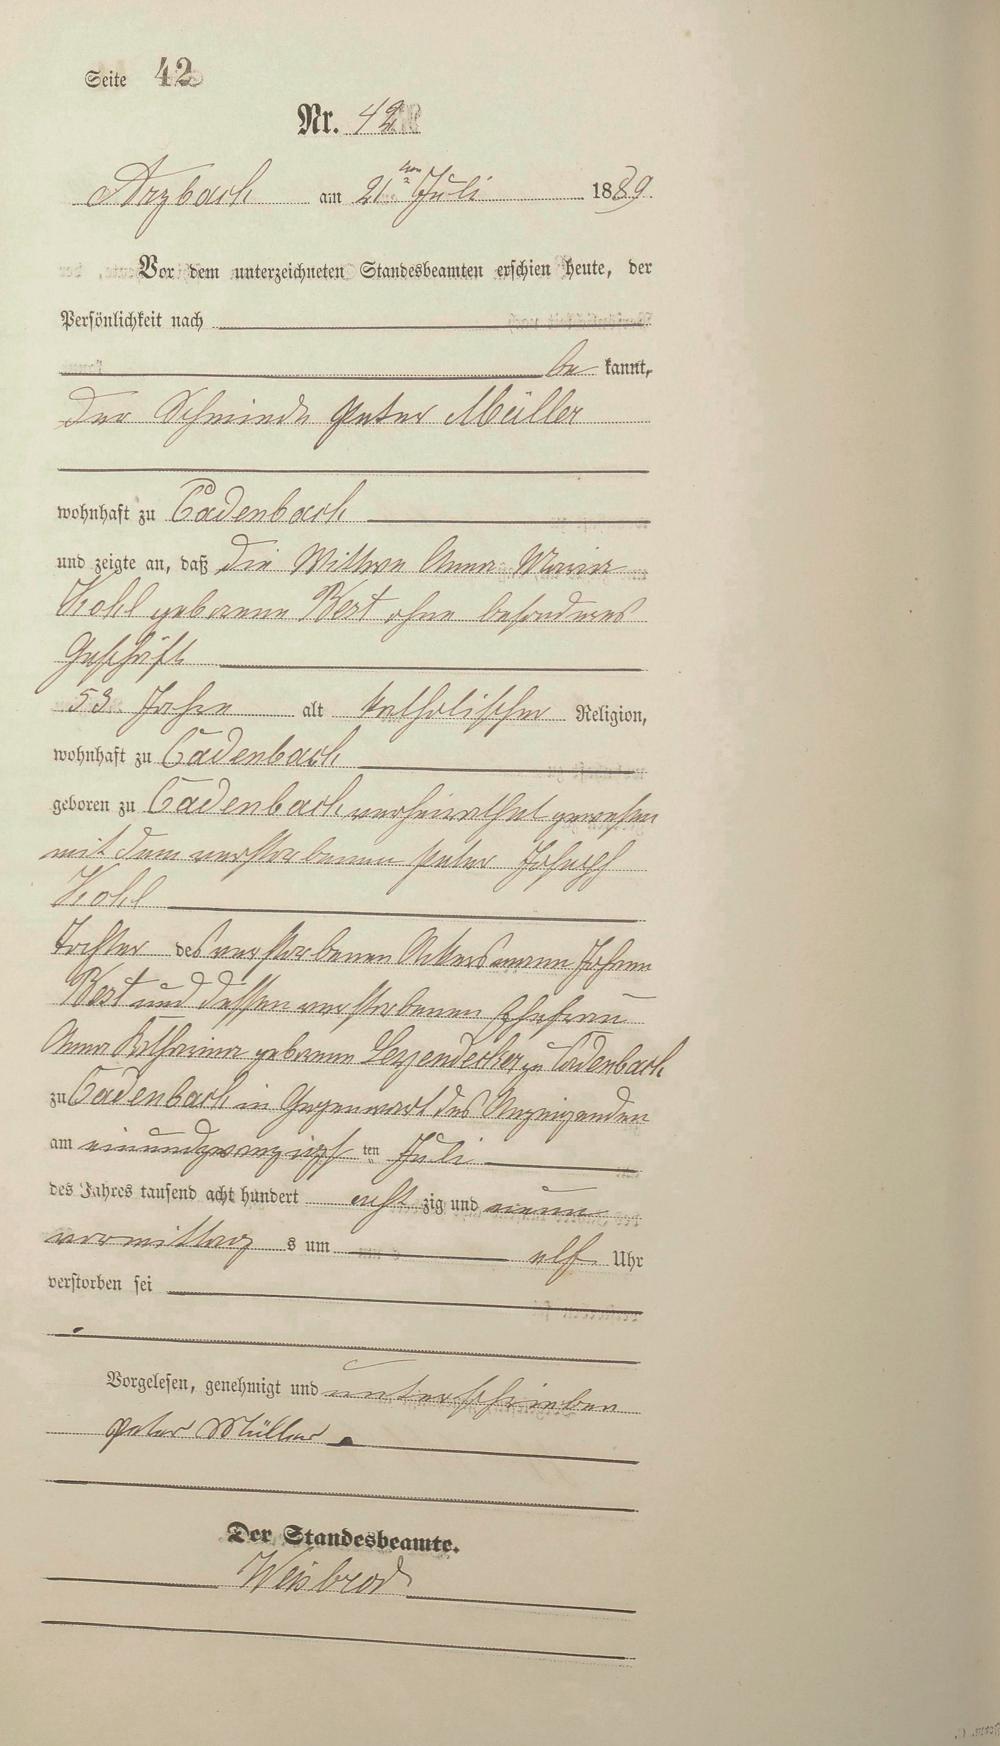 Seite 42
Nr. 42
Arzbach am 21ten Juli 1889.
Vor dem unterzeichneten Standesbeamten erschien heute, der
Persönlichkeit nach
be kannt,
Der Schmiede Peter Müller
wohnhaft zu Cadenbach
und zeigte an, daß die Wittwe Anna Maria
Kohl geborene Best ohne besonderes
Geschäft
53 Jahre alt katholischer Religion,
wohnhaft zu Cadenbach
geboren zu Cadenbach verheirathet gewesen
mit dem verstorbenen Peter Joseph
Kohl
Tochter des verstorbenen Ackersmann Johann
Best und dessen verstorbenen Ehefrau
Anna Katharina geborene Leyendecker zu Cadenbach
zu Cadenbach in Gegenwart des Anzeigenden
am einundzwanzigst ten Juli
des Jahres tausend acht hundert acht zig und neun
vormittag s um elf Uhr
verstorben sei
Vorgelesen, genehmigt und unterschrieben
Peter Müller
Der Standesbeamte.
Weisbrod